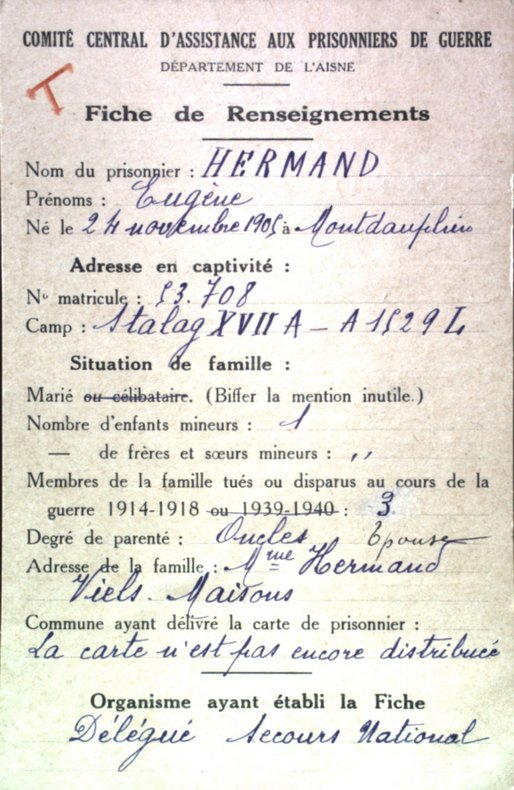 COMITÉ CENTRAL D'ASSISTANCE AUX PRISONNIERS DE GUERRE
DÉPARTEMENT DE L'AISNE
T
Fiche de Renseignements
Nom du prisonnier : HERMAND
Prénoms : Eugène
Né le 24 novembre 1905 à Montdauphin
Adresse en captivité :
N° matricule : 53.708
Camp : Stalag XVII A – A 1529 L
Situation de famille :
Marié ou célibataire. (Biffer la mention inutile.)
Nombre d'enfants mineurs : 1
— de frères et sœurs mineurs : ,,
Membres de la famille tués ou disparus au cours de la
guerre 1914-1918 ou 1939-1940 : 3
Degré de parenté : Oncles Epouse
Adresse de la famille : Mme Hermand
Viels-Maisons
Commune ayant délivré la carte de prisonnier :
La carte n'est pas encore distribuée
Organisme ayant établi la Fiche
Délégué Secours National